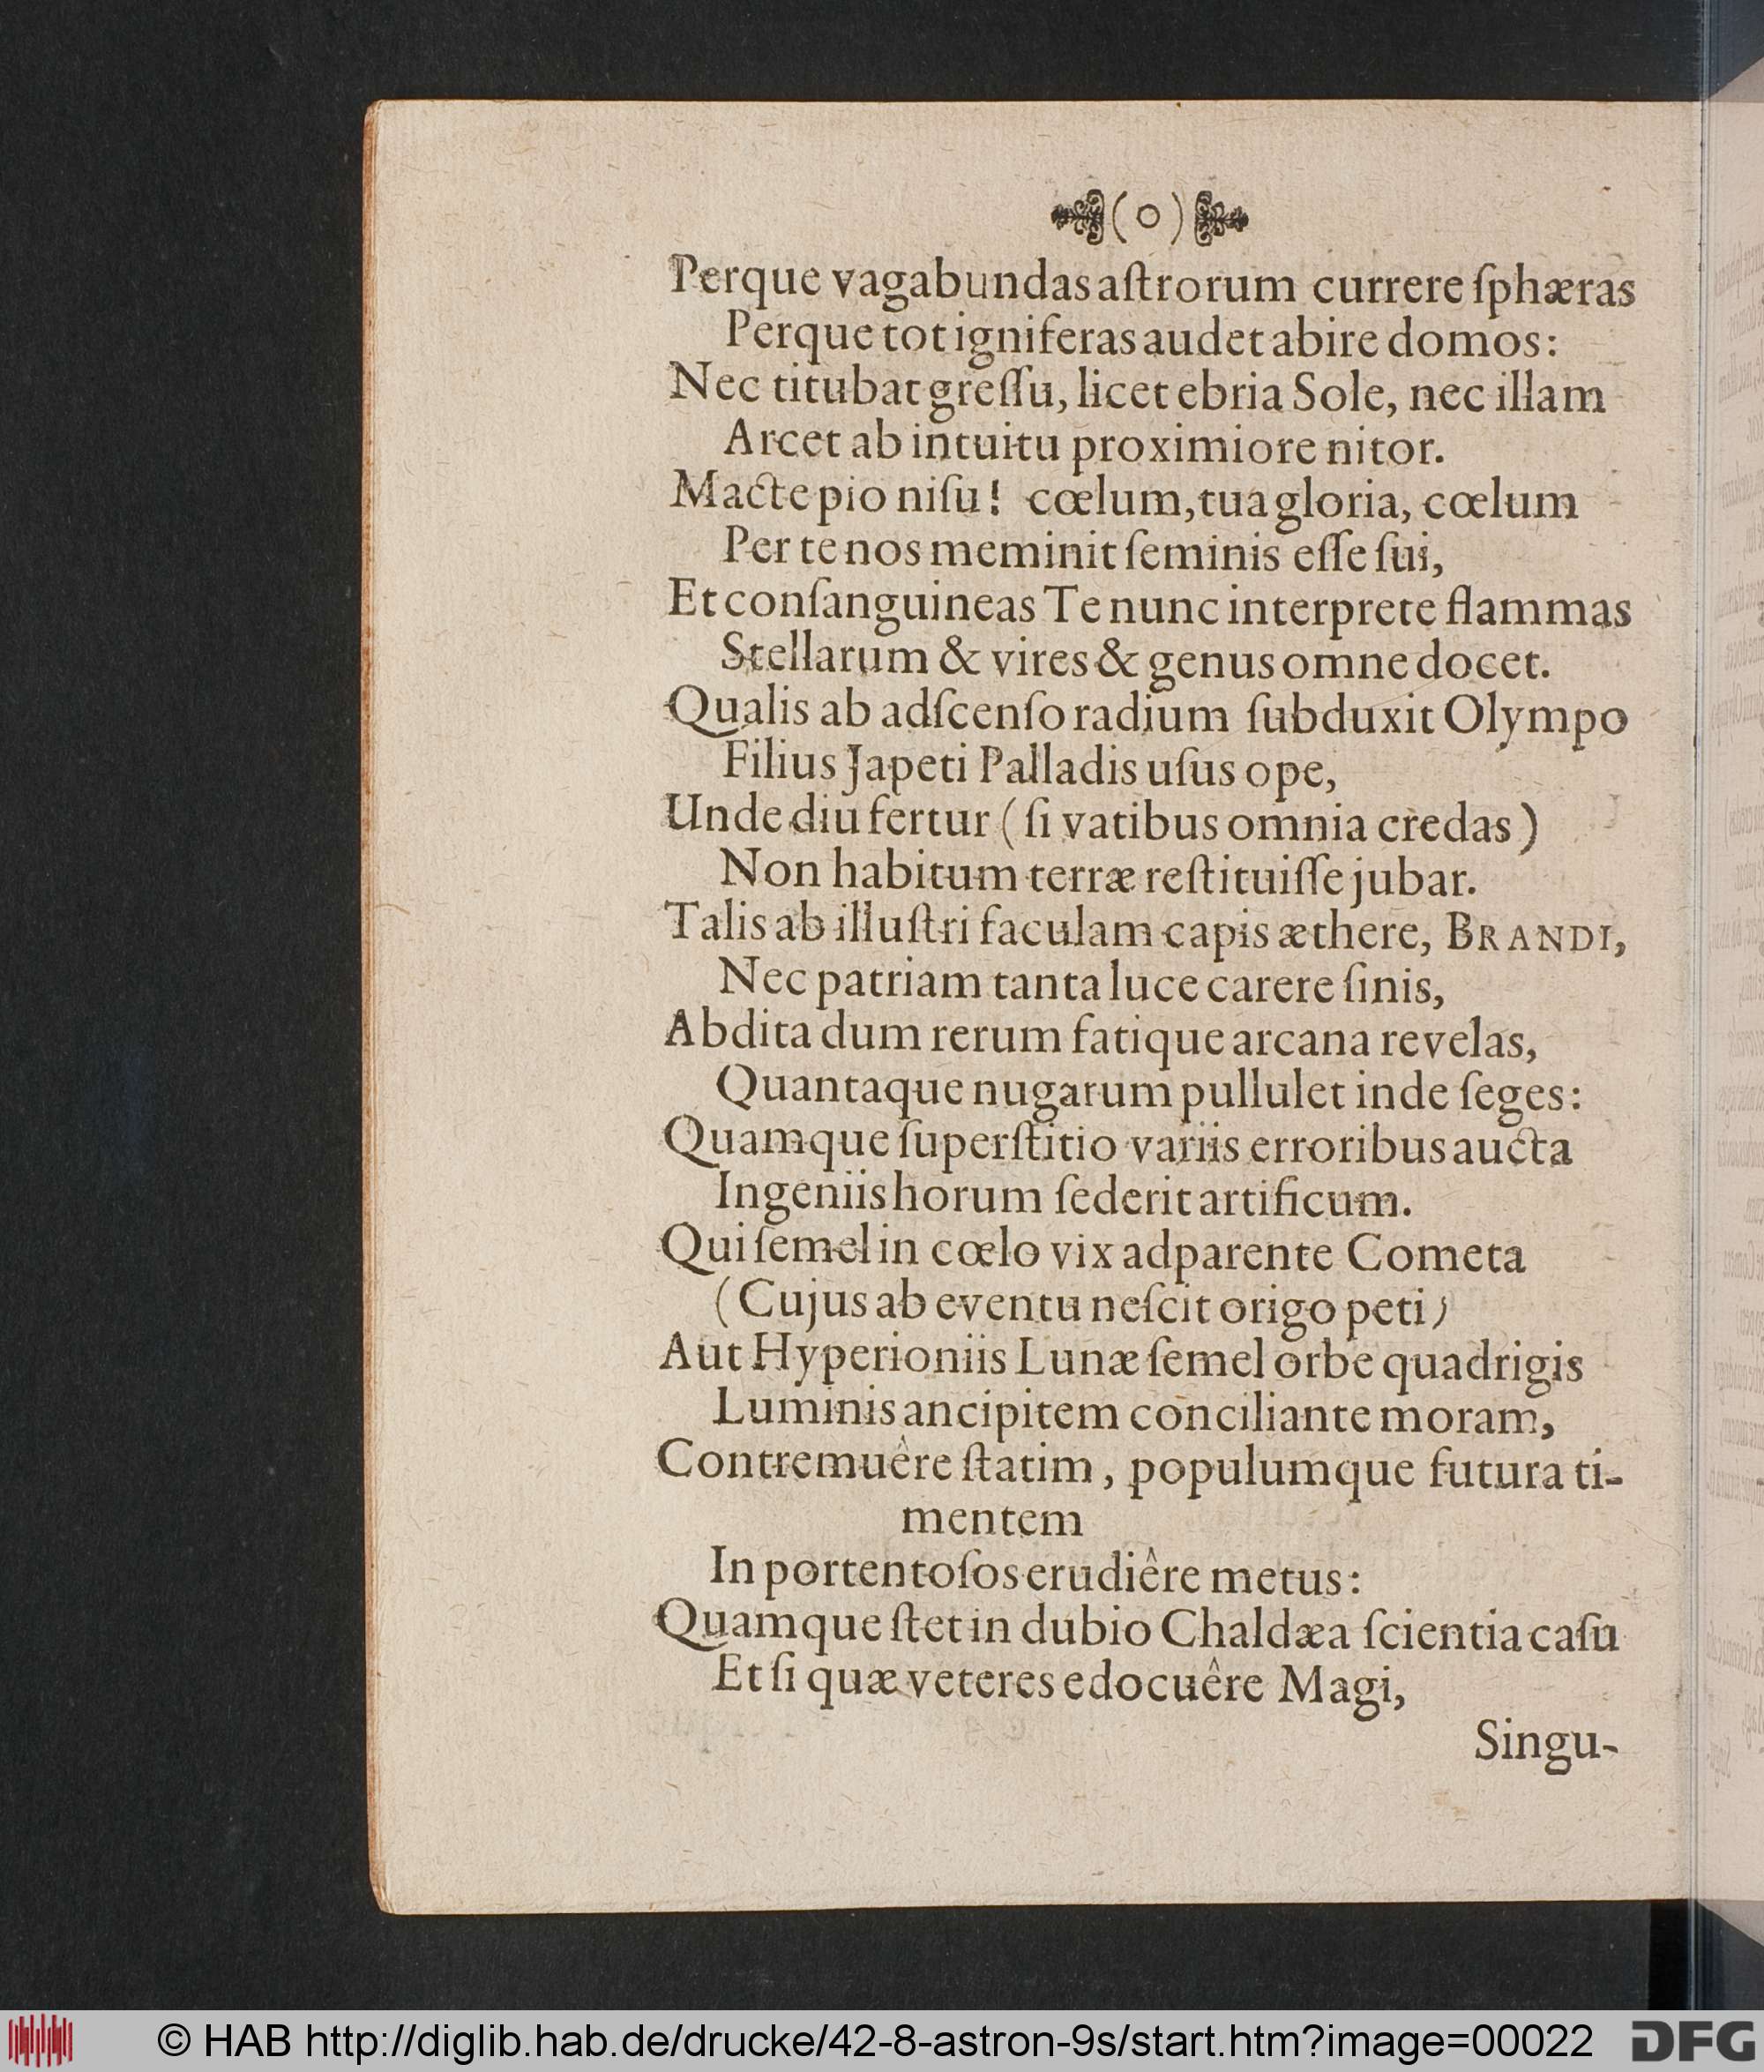 (o)
Perque vagabundas aſtrorum currere ſphæras
Perque tot igniferas audet abire domos:
Nec titubat greſſu, licet ebria Sole, nec illam
Arcet ab intuitu proximiore nitor.
Macte pio niſu! cœlum, tua gloria, cœlum
Per te nos meminit ſeminis eſſe ſui,
Et conſanguineas Te nunc interprete flammas
Stellarum & vires & genus omne docet.
Qualis ab adſcenſo radium ſubduxit Olympo
Filius Japeti Palladis uſus ope,
Unde diu fertur (ſi vatibus omnia credas)
Non habitum terræ reſtituiſſe jubar.
Talis ab illuſtri faculam capis æthere, BRANDI,
Nec patriam tanta luce carere ſinis,
Abdita dum rerum fatique arcana revelas,
Quantaque nugarum pullulet inde ſeges:
Quamque ſuperſtitio variis erroribus aucta
Ingeniis horum ſederit artificum.
Qui ſemel in cœlo vix adparente Cometa
(Cujus ab eventu neſcit origo peti)
Aut Hyperioniis Lunæ ſemel orbe quadrigis
Luminis ancipitem conciliante moram,
Contremuêre ſtatim, populumque futura ti-
mentem
In portentoſos erudiêre metus:
Quamque ſtet in dubio Chaldæa ſcientia caſu
Et ſi quæ veteres edocuêre Magi,
Singu-
© HAB http://diglib.hab.de/drucke/42-8-astron-9s/start.htm?image=00022
DFG